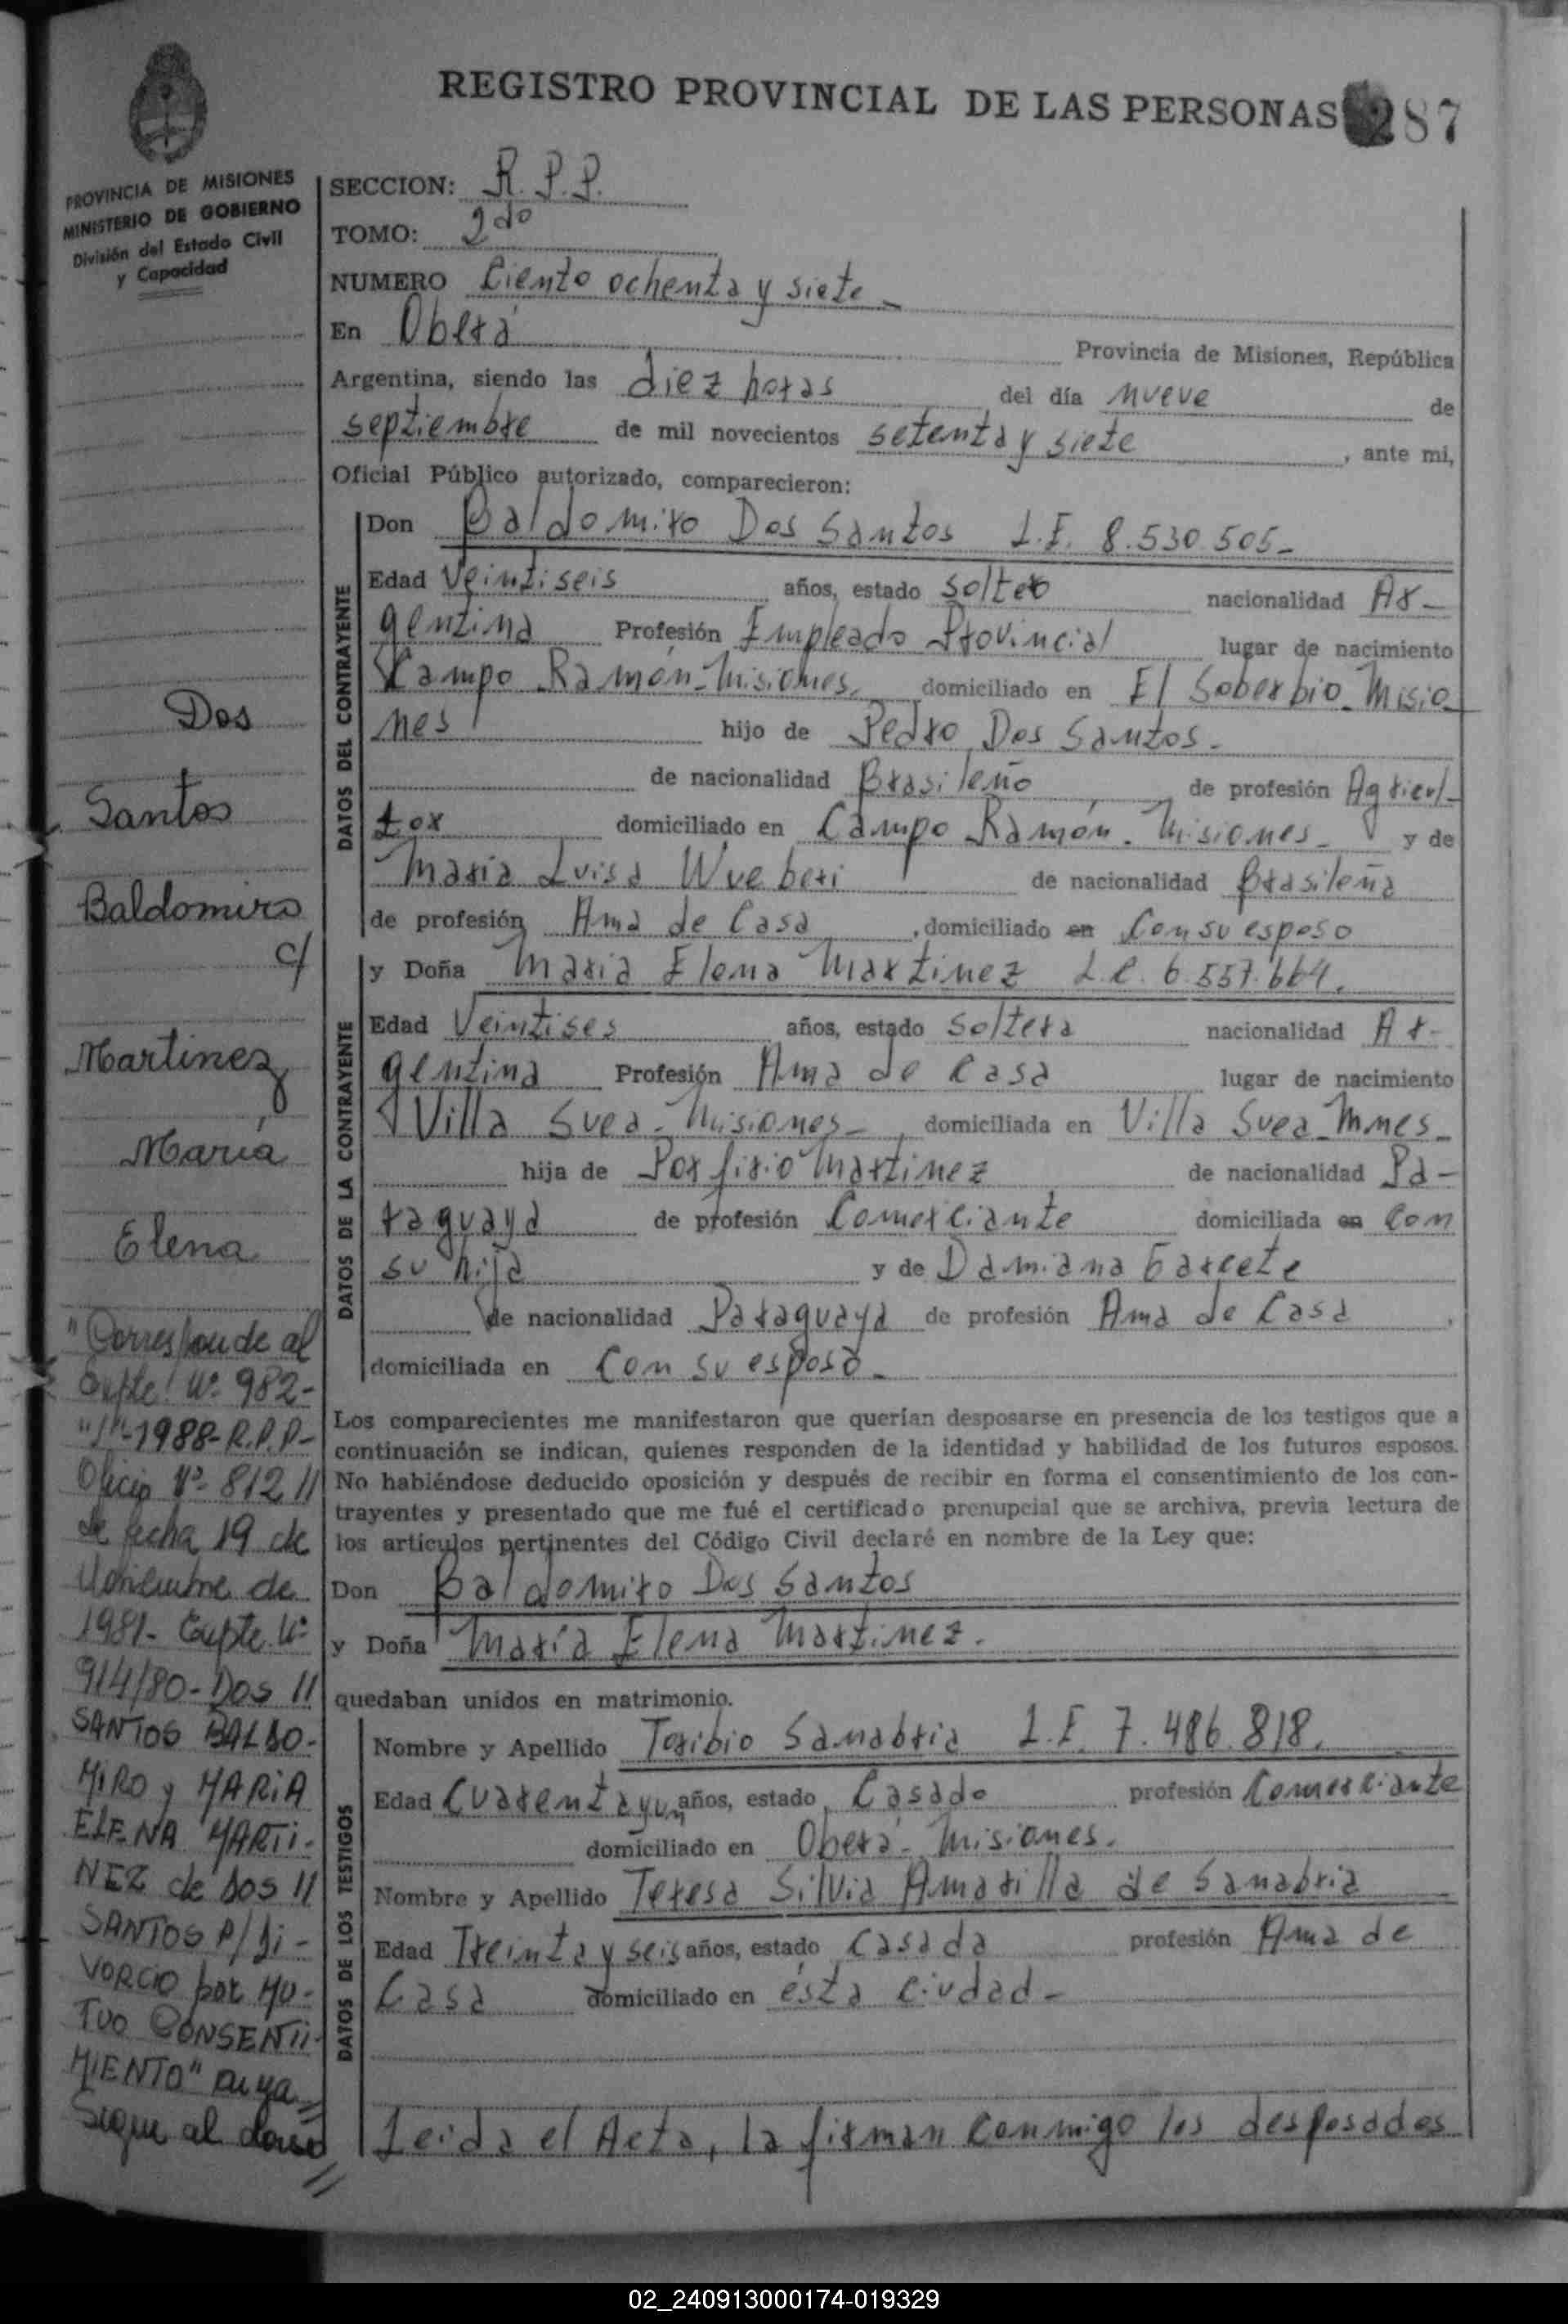 REGISTRO PROVINCIAL DE LAS PERSONAS 287
PROVINCIA DE MISIONES
MINISTERIO DE GOBIERNO
División del Estado Civil
y Capacidad
SECCION: R.P.P.
TOMO: 2do
NUMERO Ciento ochenta y siete
En Oberá Provincia de Misiones, República
Argentina, siendo las diez horas del día nueve de
septiembre de mil novecientos setenta y siete, ante mi,
Oficial Público autorizado, comparecieron:
DATOS DEL CONTRAYENTE
Don Baldomiro Dos Santos L.E. 8.530.505-
Edad Veintiseis años, estado soltero nacionalidad Ar-
gentina Profesión Empleado Provincial lugar de nacimiento
Campo Ramón-Misiones, domiciliado en El Soberbio-Misio-
nes hijo de Pedro Dos Santos-
de nacionalidad Brasileño de profesión Agricul-
tor domiciliado en Campo Ramón-Misiones- y de
María Luisa Wueberi de nacionalidad Brasileña
de profesión Ama de Casa, domiciliado en Con su esposo
DATOS DE LA CONTRAYENTE
y Doña Maria Elena Martinez L.C. 6.557.664.
Edad Veintises años, estado soltera nacionalidad Ar-
gentina Profesión Ama de Casa lugar de nacimiento
Villa Svea-Misiones-, domiciliada en Villa Svea-Mnes-
hija de Porfirio Martinez de nacionalidad Pa-
raguaya de profesión Comerciante domiciliada en con
su hija y de Damiana Garcete
de nacionalidad Paraguaya de profesión Ama de Casa,
domiciliada en Con su esposo-
Los comparecientes me manifestaron que querían desposarse en presencia de los testigos que a
continuación se indican, quienes responden de la identidad y habilidad de los futuros esposos.
No habiéndose deducido oposición y después de recibir en forma el consentimiento de los con-
trayentes y presentado que me fué el certificado prenupcial que se archiva, previa lectura de
los artículos pertinentes del Código Civil declaré en nombre de la Ley que:
Don Baldomiro Dos Santos
y Doña María Elena Martinez.
quedaban unidos en matrimonio.
DATOS DE LOS TESTIGOS
Nombre y Apellido Toribio Sanabria L.E. 7.486.818.
Edad Cuarenta y un años, estado Casado profesión Comerciante
domiciliado en Oberá-Misiones.
Nombre y Apellido Teresa Silvia Amarilla de Sanabria
Edad Treinta y seis años, estado Casada profesión Ama de
Casa domiciliado en ésta ciudad-
Leida el Acta, la firman conmigo los desposados
Dos
Santos
Baldomiro
c/
Martinez
María
Elena
"Corresponde al
Expte. Nº 982-
1988-R.P.P-
Oficio Nº 812//
de fecha 19 de
Noviembre de
1981- Expte. Nº
914/80-Dos //
SANTOS BALDO-
MIRO y MARIA
ELENA MARTI-
NEZ de DOS //
SANTOS P/Di-
VORCIO por MU-
TUO CONSENTI-
MIENTO" cuya
Sigue al dorso
//
02_240913000174-019329